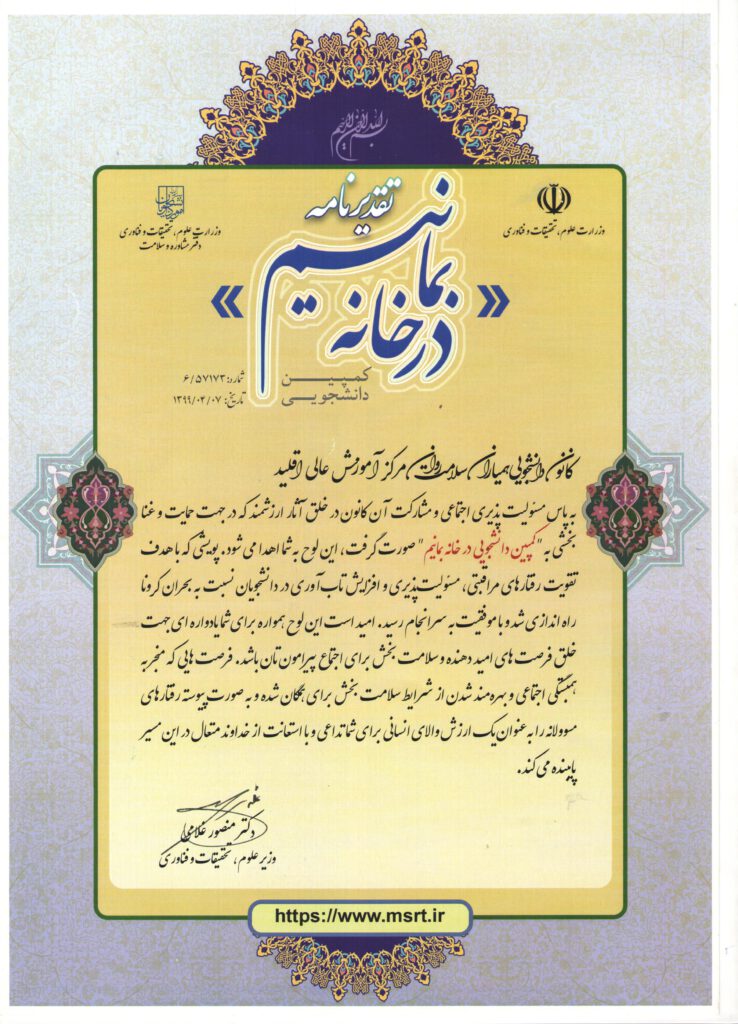 بسم الله الرحمن الرحیم
تقدیرنامه
وزارت علوم، تحقیقات و فناوری
وزارت علوم، تحقیقات و فناوری
دفتر مشاوره و سلامت
«در خانه بمانیم»
کمپین
دانشجویی
شماره: ۶/۵۷۱۷۳
تاریخ: ۱۳۹۹/۰۴/۰۷
کانون دانشجویی همیاران سلامت روان مرکز آموزش عالی اقلید
به پاس مسئولیت پذیری اجتماعی و مشارکت آن کانون در خلق آثار ارزشمند که در جهت حمایت و غنا
بخشی به "کمپین دانشجویی در خانه بمانیم" صورت گرفت، این لوح به شما اهدا می شود. پویشی که با هدف
تقویت رفتارهای مراقبتی، مسئولیت‌پذیری و افزایش تاب آوری در دانشجویان نسبت به بحران کرونا
راه اندازی شد و با موفقیت به سرانجام رسید. امید است این لوح همواره برای شما یادواره ای جهت
خلق فرصت های امید دهنده و سلامت بخش برای اجتماع پیرامون تان باشد. فرصت هایی که منجر به
همبستگی اجتماعی و بهره مند شدن از شرایط سلامت بخش برای همگان شده و به صورت پیوسته رفتارهای
مسوولانه را به عنوان یک ارزش والای انسانی برای شما تداعی و با استعانت از خداوند متعال در این مسیر
پاینده می کند.
دکتر منصور غلامی
وزیر علوم، تحقیقات و فناوری
https://www.msrt.ir